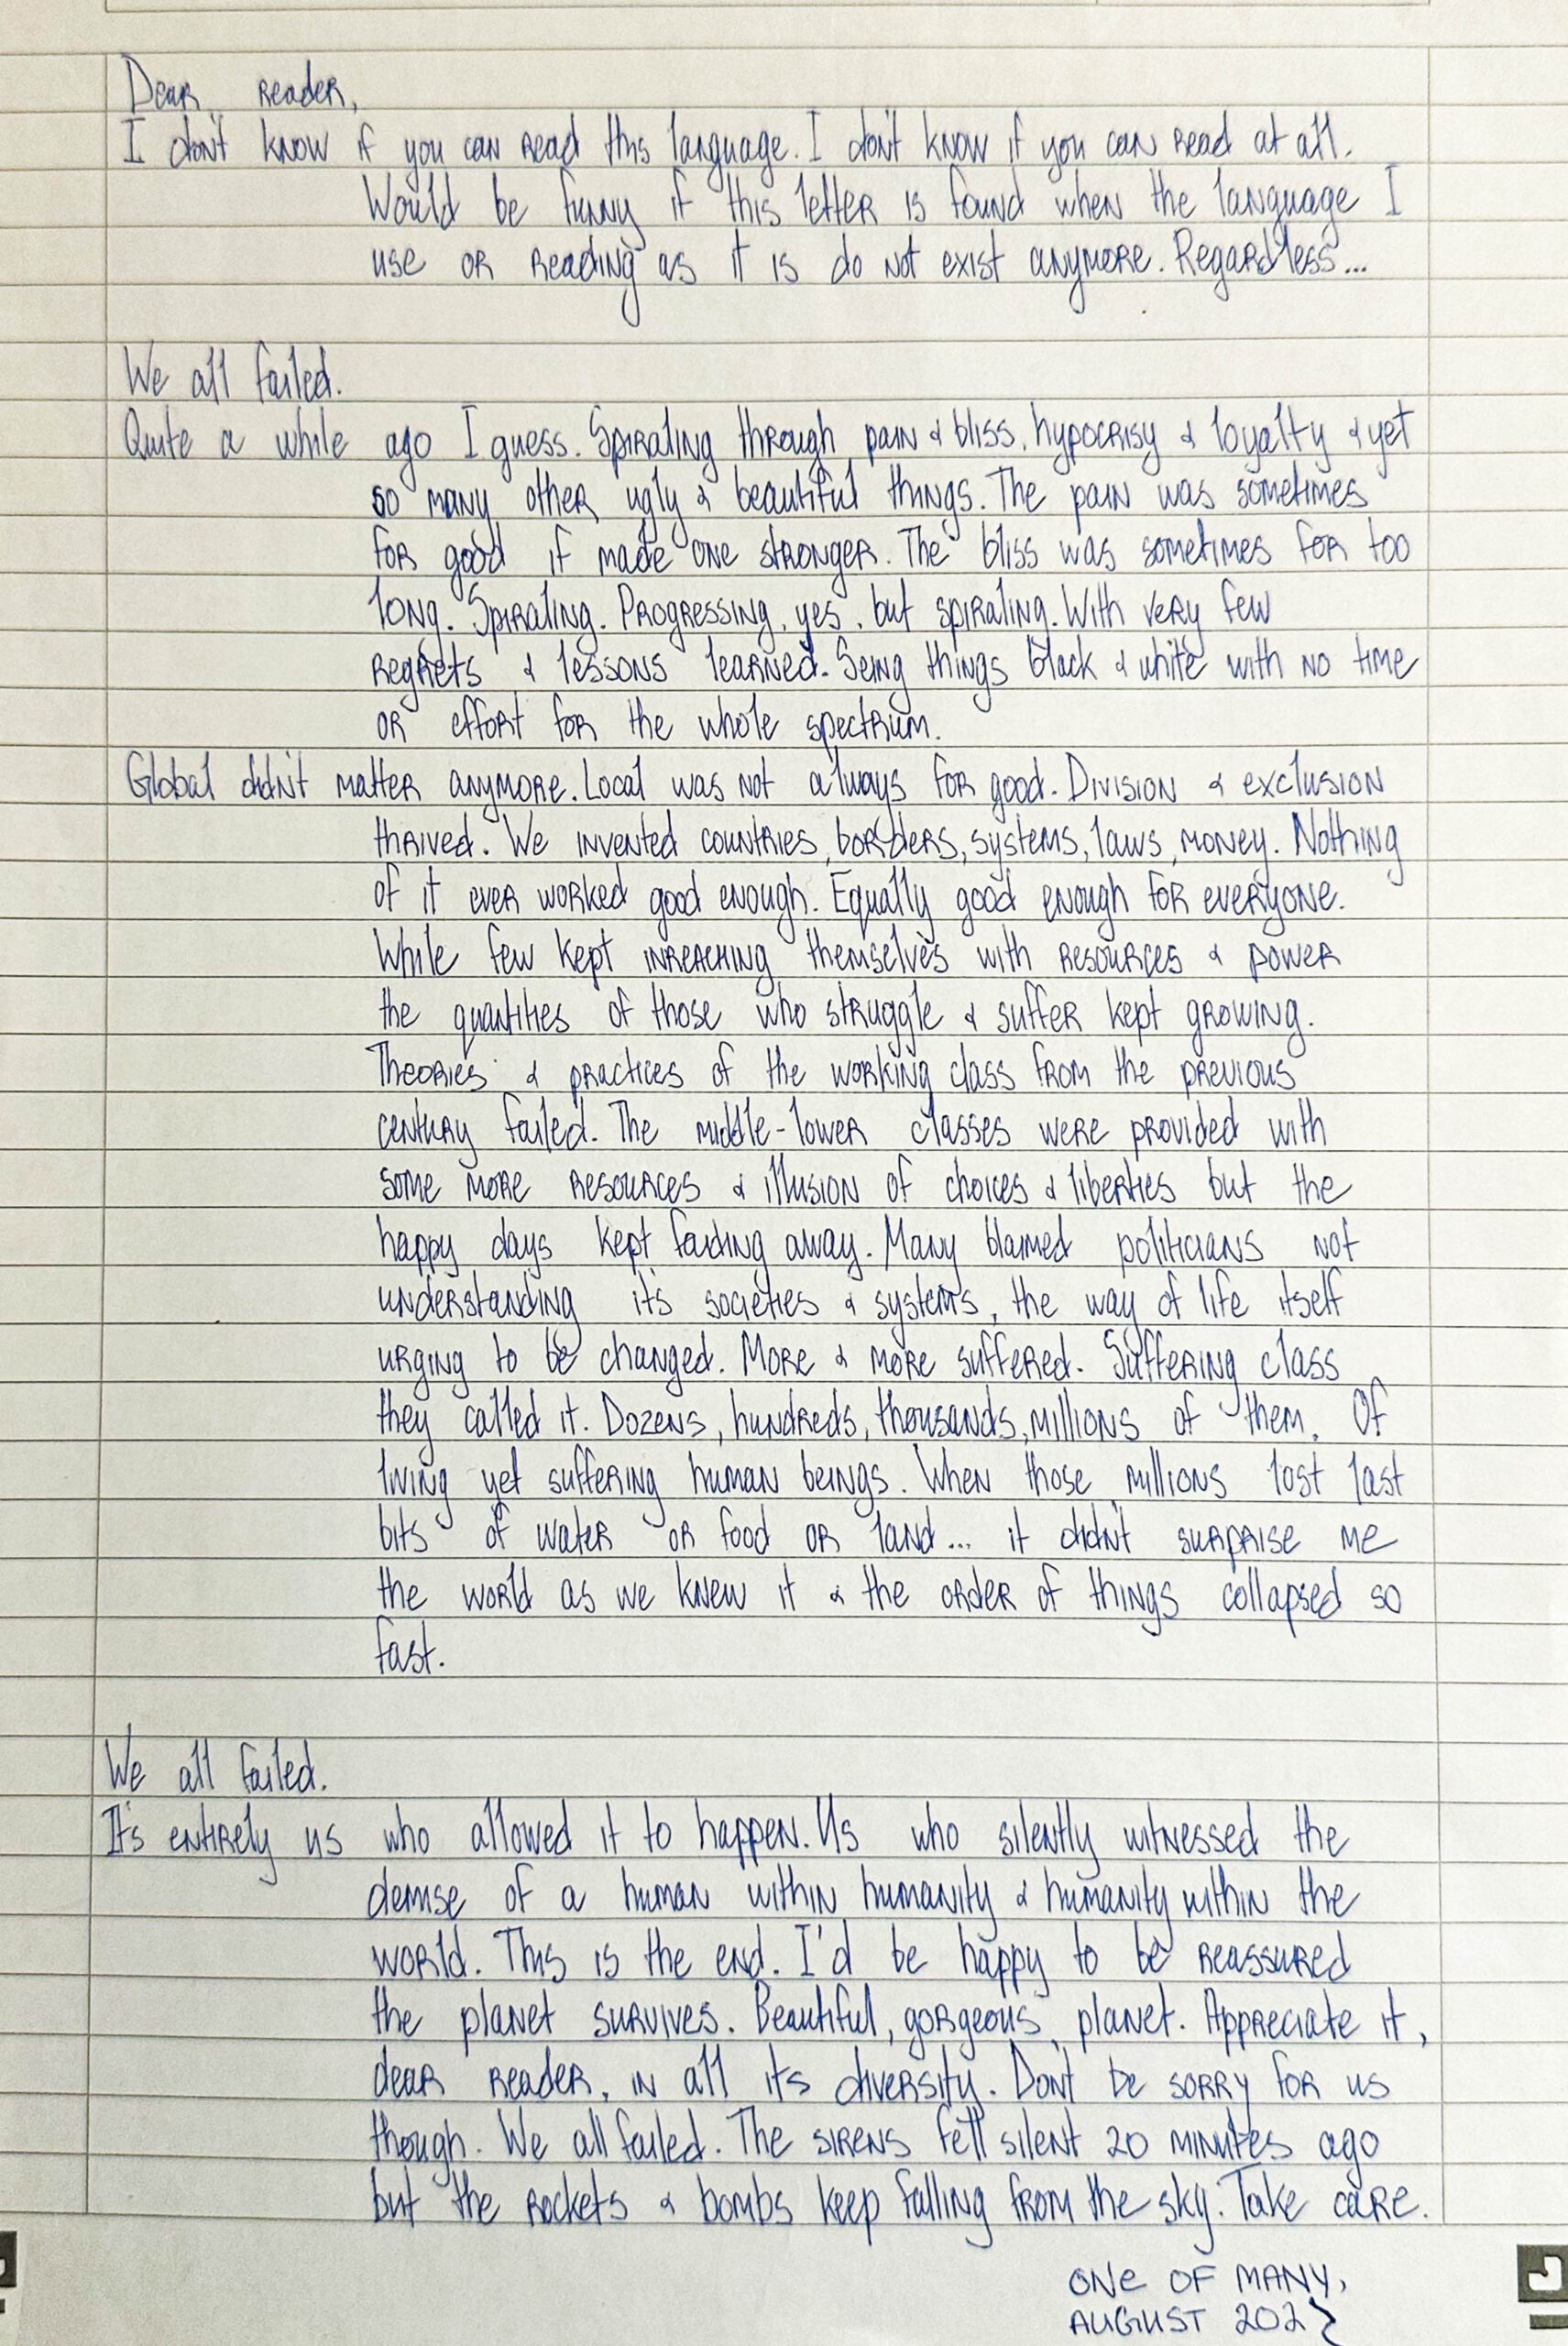 Dear reader,
I don't know if you can read this language. I don't know if you can read at all.
Would be funny if this letter is found when the language I
use or reading as it is do not exist anymore. Regardless...
We all failed.
Quite a while ago I guess. Spiraling through pain & bliss, hypocrisy & loyalty & yet
so many other ugly & beautiful things. The pain was sometimes
for good if made one stronger. The bliss was sometimes for too
long. Spiraling. Progressing, yes, but spiraling. With very few
regrets & lessons learned. Seing things black & white with no time
or effort for the whole spectrum.
Global didn't matter anymore. Local was not always for good. Division & exclusion
thrived. We invented countries, borders, systems, laws, money. Nothing
of it ever worked good enough. Equally good enough for everyone.
While few kept inreaching themselves with resources & power
the quantities of those who struggle & suffer kept growing.
Theories & practices of the working class from the previous
century failed. The middle-lower classes were provided with
some more resources & illusion of choices & liberties but the
happy days kept fading away. Many blamed politicians not
understanding its societies & systems, the way of life itself
urging to be changed. More & more suffered. Suffering class
they called it. Dozens, hundreds, thousands, millions of them. Of
living yet suffering human beings. When those millions lost last
bits of water or food or land... it didn't surprise me
the world as we knew it & the order of things collapsed so
fast.
We all failed.
It's entirely us who allowed it to happen. Us who silently witnessed the
demise of a human within humanity & humanity within the
world. This is the end. I'd be happy to be reassured
the planet survives. Beautiful, gorgeous planet. Appreciate it,
dear reader, in all its diversity. Don't be sorry for us
though. We all failed. The sirens fell silent 20 minutes ago
but the rockets & bombs keep falling from the sky. Take care.
ONE OF MANY,
AUGUST 202